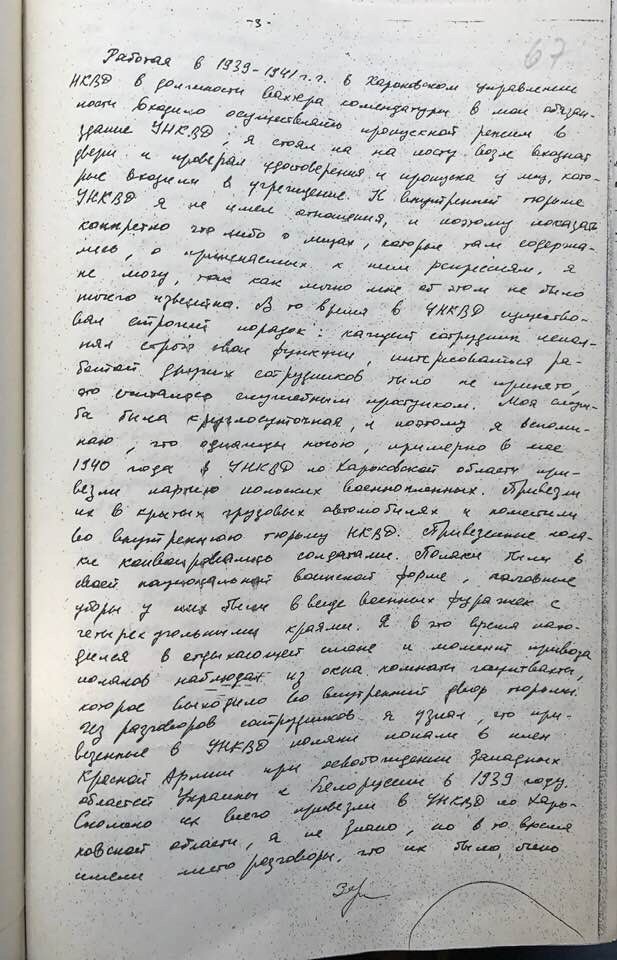 -3-
67
Работая в 1939-1941 г.г. в Харьковском управлении
НКВД в должности вахтера комендатуры в мои обязан-
ности входило осуществлять пропускной режим в
здание УНКВД; я стоял на на посту возле входной
двери и проверял удостоверения и пропуска у лиц, кото-
рые входили в учреждение. К внутренней тюрьме
УНКВД я не имел отношения, и поэтому показать
конкретно что либо о лицах, которые там содержа-
лись, о применяемых к ним репрессиям, я
не могу, так как лично мне об этом не было
ничего известно. В то время в УНКВД существо-
вал строгий порядок: каждый сотрудник испол-
нял строго свои функции, интересоваться ра-
ботой других сотрудников было не принято,
это считалось служебным проступком. Моя служ-
ба была круглосуточная, и поэтому я вспоми-
наю, что однажды ночью, примерно в мае
1940 года в УНКВД по Харьковской области при-
везли партию польских военнопленных. Привезли
их в крытых грузовых автомобилях и поместили
во внутреннюю тюрьму НКВД. Привезенные поля-
ки конвоировались солдатами. Поляки были в
своей национальной воинской форме, головные
уборы у них были в виде военных фуражек с
четырехугольными краями. Я в это время нахо-
дился в отдыхающей смене и момент привоза
поляков наблюдал из окна комнаты гауптвахты,
которое выходило во внутренний двор тюрьмы.
Из разговоров сотрудников я узнал, что при-
везенные в УНКВД поляки попали в плен
Красной Армии при освобождении Западных
областей Украины и Белоруссии в 1939 году.
Сколько их всего привезли в УНКВД по Харь-
ковской области, я не знаю, но в то время
имели место разговоры, что их было, было